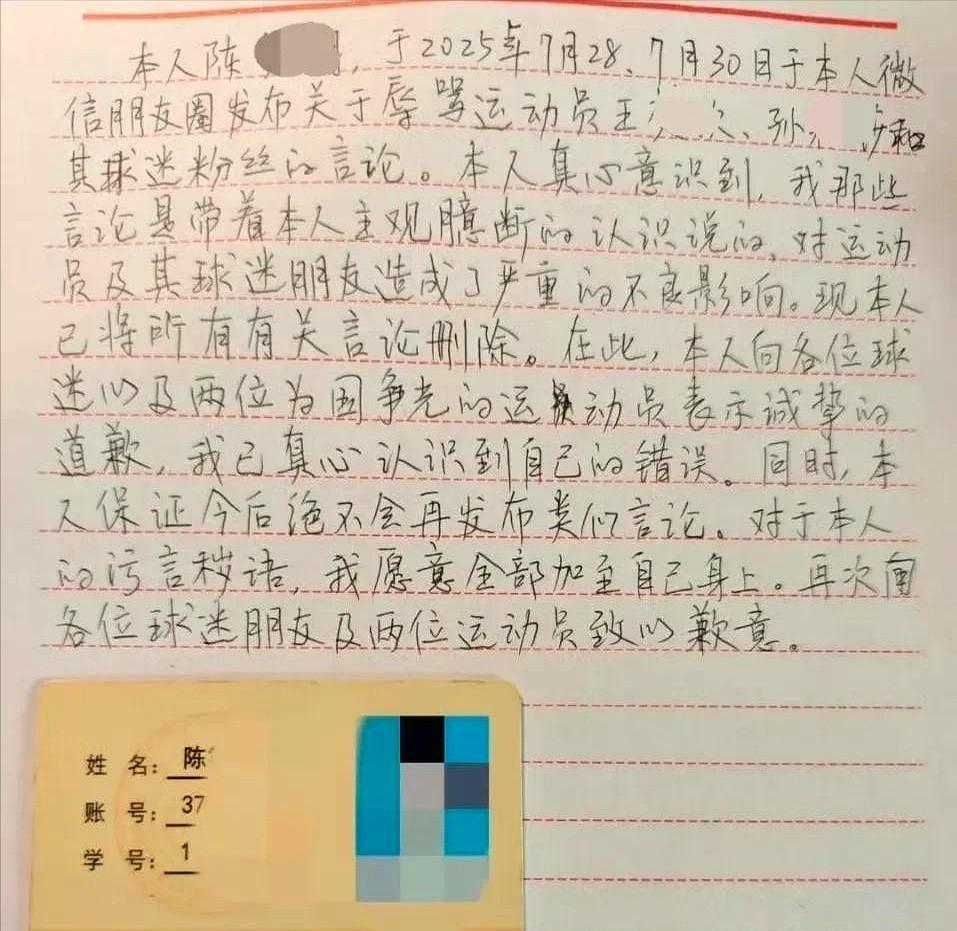 本人陈 ，于2025年7月28、7月30日于本人微
信朋友圈发布关于辱骂运动员王 、孙 和
其球迷粉丝的言论。本人真心意识到，我那些
言论是带着本人主观臆断的认识说的，对运动
员及其球迷朋友造成了严重的不良影响。现本人
已将所有有关言论删除。在此，本人向各位球
迷以及两位为国争光的运动员表示诚挚的
道歉，我已真心认识到自己的错误。同时，本
人保证今后绝不会再发布类似言论。对于本人
的污言秽语，我愿意全部加至自己身上。再次向
各位球迷朋友及两位运动员致以歉意。
姓 名：陈
账 号：37
学 号：1